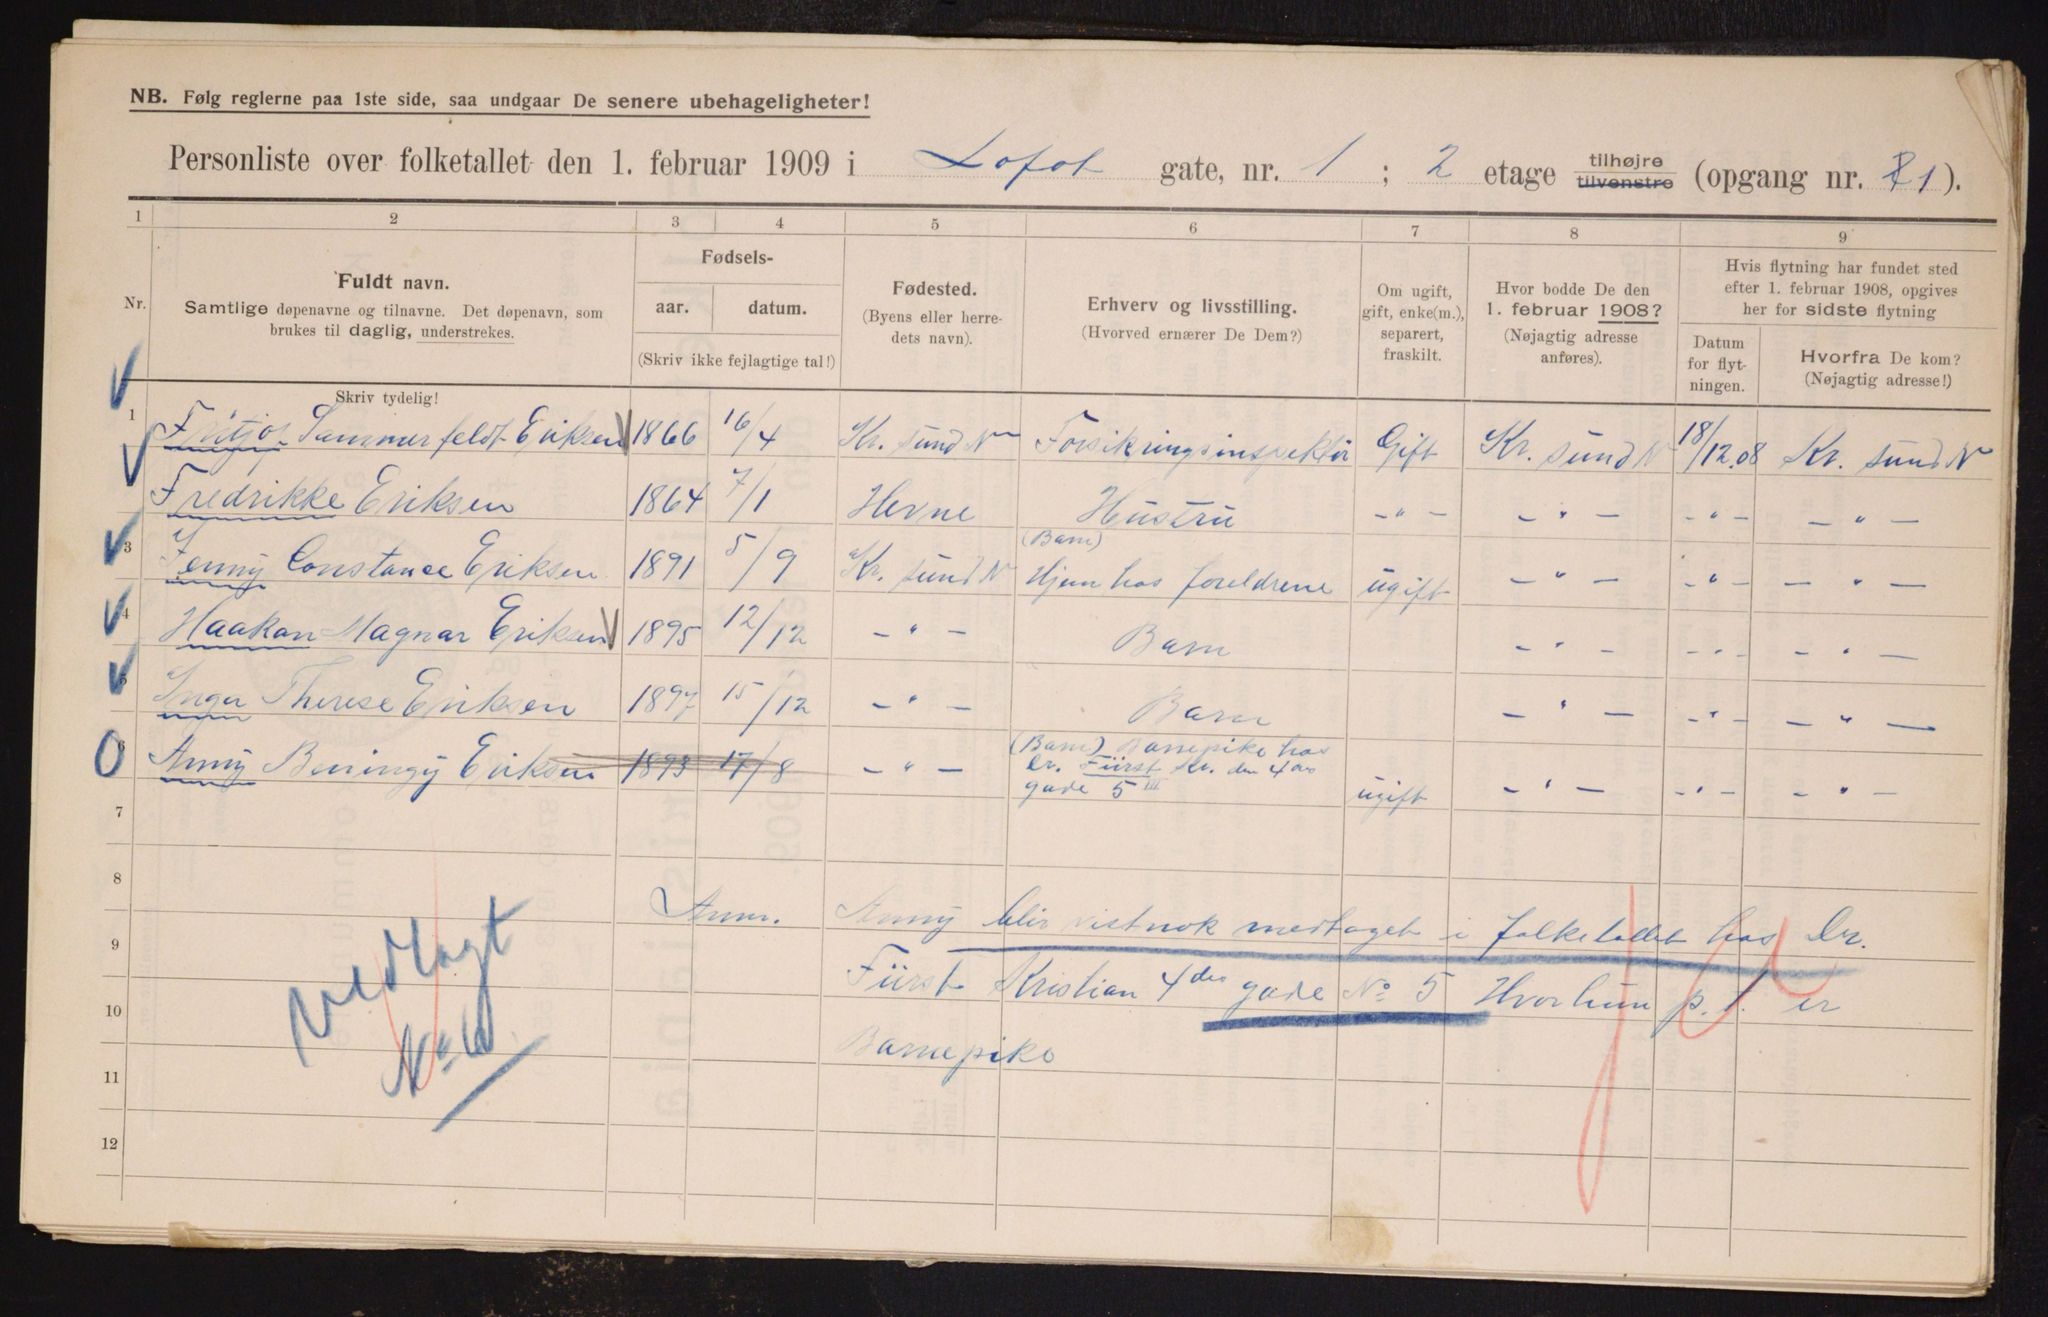 NB. Følg reglerne paa 1ste side, saa undgaar De senere ubehageligheter!
Personliste over folketallet den 1. februar 1909 i Lofot gate, nr. 1 ; 2 etage tilhøjre tilvenstre (opgang nr. 1).
1 2 3 4 5 6 7 8 9
Nr.
Fuldt navn.
Samtlige døpenavne og tilnavne. Det døpenavn, som
brukes til daglig, understrekes.
Skriv tydelig!
Fødsels-
aar. datum.
(Skriv ikke fejlagtige tal!)
Fødested.
(Byens eller herre-
dets navn).
Erhverv og livsstilling.
(Hvorved ernærer De Dem?)
Om ugift,
gift, enke(m.),
separert,
fraskilt.
Hvor bodde De den
1. februar 1908?
(Nøjagtig adresse
anføres).
Hvis flytning har fundet sted
efter 1. februar 1908, opgives
her for sidste flytning
Datum
for flyt-
ningen.
Hvorfra De kom?
(Nøjagtig adresse!)
1 Fritjof Sammerfeldt Eriksen 1866 16/4 Kr. sund N Forsikringsinspektør Gift Kr. sund N 18/12.08 Kr. sund N
Fredrikke Eriksen 1864 7/1 Hevne Hustru -"- -"- -"- -"-
(Barn)
3 Jenny Constance Eriksen 1891 5/9 Kr. sund N Hjem hos foreldrene ugift -"- -"- -"-
4 Haakon Magnar Eriksen 1895 12/12 -"- Barn -"- -"- -"-
5 Inger Therese Eriksen 1897 15/12 -"- Barn -"- -"- -"-
6 Anny Benningy Eriksen 1893 17/8 -"- (Barn) Barnepike hos
Dr. Fürst Kr. den 4des
gade 5 III ugift -"- -"- -"-
7
8
Anm. Anny blir vistnok medtaget i folketallet hos Dr.
9
Fürst Kristian 4des gade No 5 Hvor hun p. t. er
10
Barnepike
11
12
Vedlagt
No 6